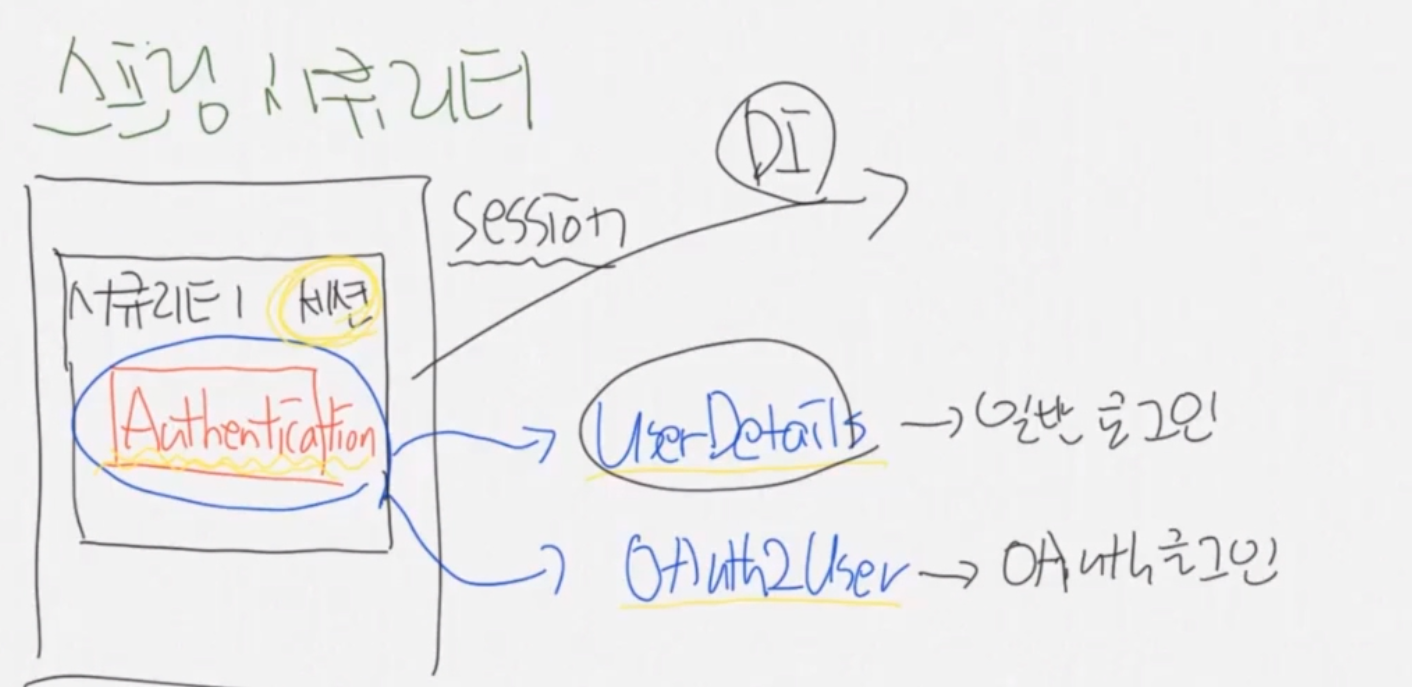 스프링 시큐리티
DI
session
시큐리티 세션
Authentication
UserDetails → 일반 로그인
OAuth2User → OAuth 로그인